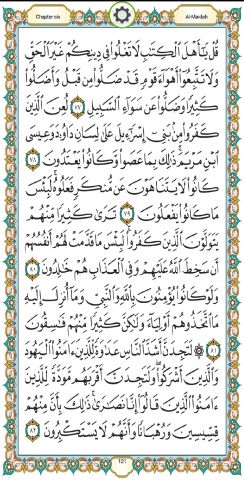 Chapter six
Al-Maidah
قُلْ يَا أَهْلَ الْكِتَابِ لَا تَغْلُوا فِي دِينِكُمْ غَيْرَ الْحَقِّ
وَلَا تَتَّبِعُوا أَهْوَاءَ قَوْمٍ قَدْ ضَلُّوا مِن قَبْلُ وَأَضَلُّوا
كَثِيرًا وَضَلُّوا عَن سَوَاءِ السَّبِيلِ ٧٧ لُعِنَ الَّذِينَ
كَفَرُوا مِن بَنِي إِسْرَائِيلَ عَلَىٰ لِسَانِ دَاوُودَ وَعِيسَى
ابْنِ مَرْيَمَ ذَٰلِكَ بِمَا عَصَوا وَّكَانُوا يَعْتَدُونَ ٧٨
كَانُوا لَا يَتَنَاهَوْنَ عَن مُّنكَرٍ فَعَلُوهُ لَبِئْسَ
مَا كَانُوا يَفْعَلُونَ ٧٩ تَرَىٰ كَثِيرًا مِّنْهُمْ
يَتَوَلَّوْنَ الَّذِينَ كَفَرُوا لَبِئْسَ مَا قَدَّمَتْ لَهُمْ أَنفُسُهُمْ
أَن سَخِطَ اللَّهُ عَلَيْهِمْ وَفِي الْعَذَابِ هُمْ خَالِدُونَ ٨٠
وَلَوْ كَانُوا يُؤْمِنُونَ بِاللَّهِ وَالنَّبِيِّ وَمَا أُنزِلَ إِلَيْهِ
مَا اتَّخَذُوهُمْ أَوْلِيَاءَ وَلَٰكِنَّ كَثِيرًا مِّنْهُمْ فَاسِقُونَ
٨١ لَتَجِدَنَّ أَشَدَّ النَّاسِ عَدَاوَةً لِّلَّذِينَ آمَنُوا الْيَهُودَ
وَالَّذِينَ أَشْرَكُوا وَلَتَجِدَنَّ أَقْرَبَهُم مَّوَدَّةً لِّلَّذِينَ
آمَنُوا الَّذِينَ قَالُوا إِنَّا نَصَارَىٰ ذَٰلِكَ بِأَنَّ مِنْهُمْ
قِسِّيسِينَ وَرُهْبَانًا وَأَنَّهُمْ لَا يَسْتَكْبِرُونَ ٨٢
121